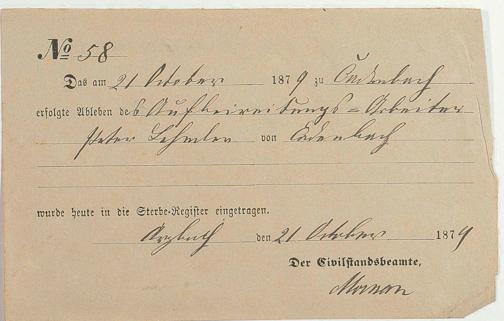 No 58
Das am 21 October 1879 zu Cadenbach
erfolgte Ableben des Aufbereitungs=Arbeiter
Peter von Cadenbach
wurde heute in die Sterbe-Register eingetragen.
Arzbach den 21 October 1879
Der Civilstandsbeamte,